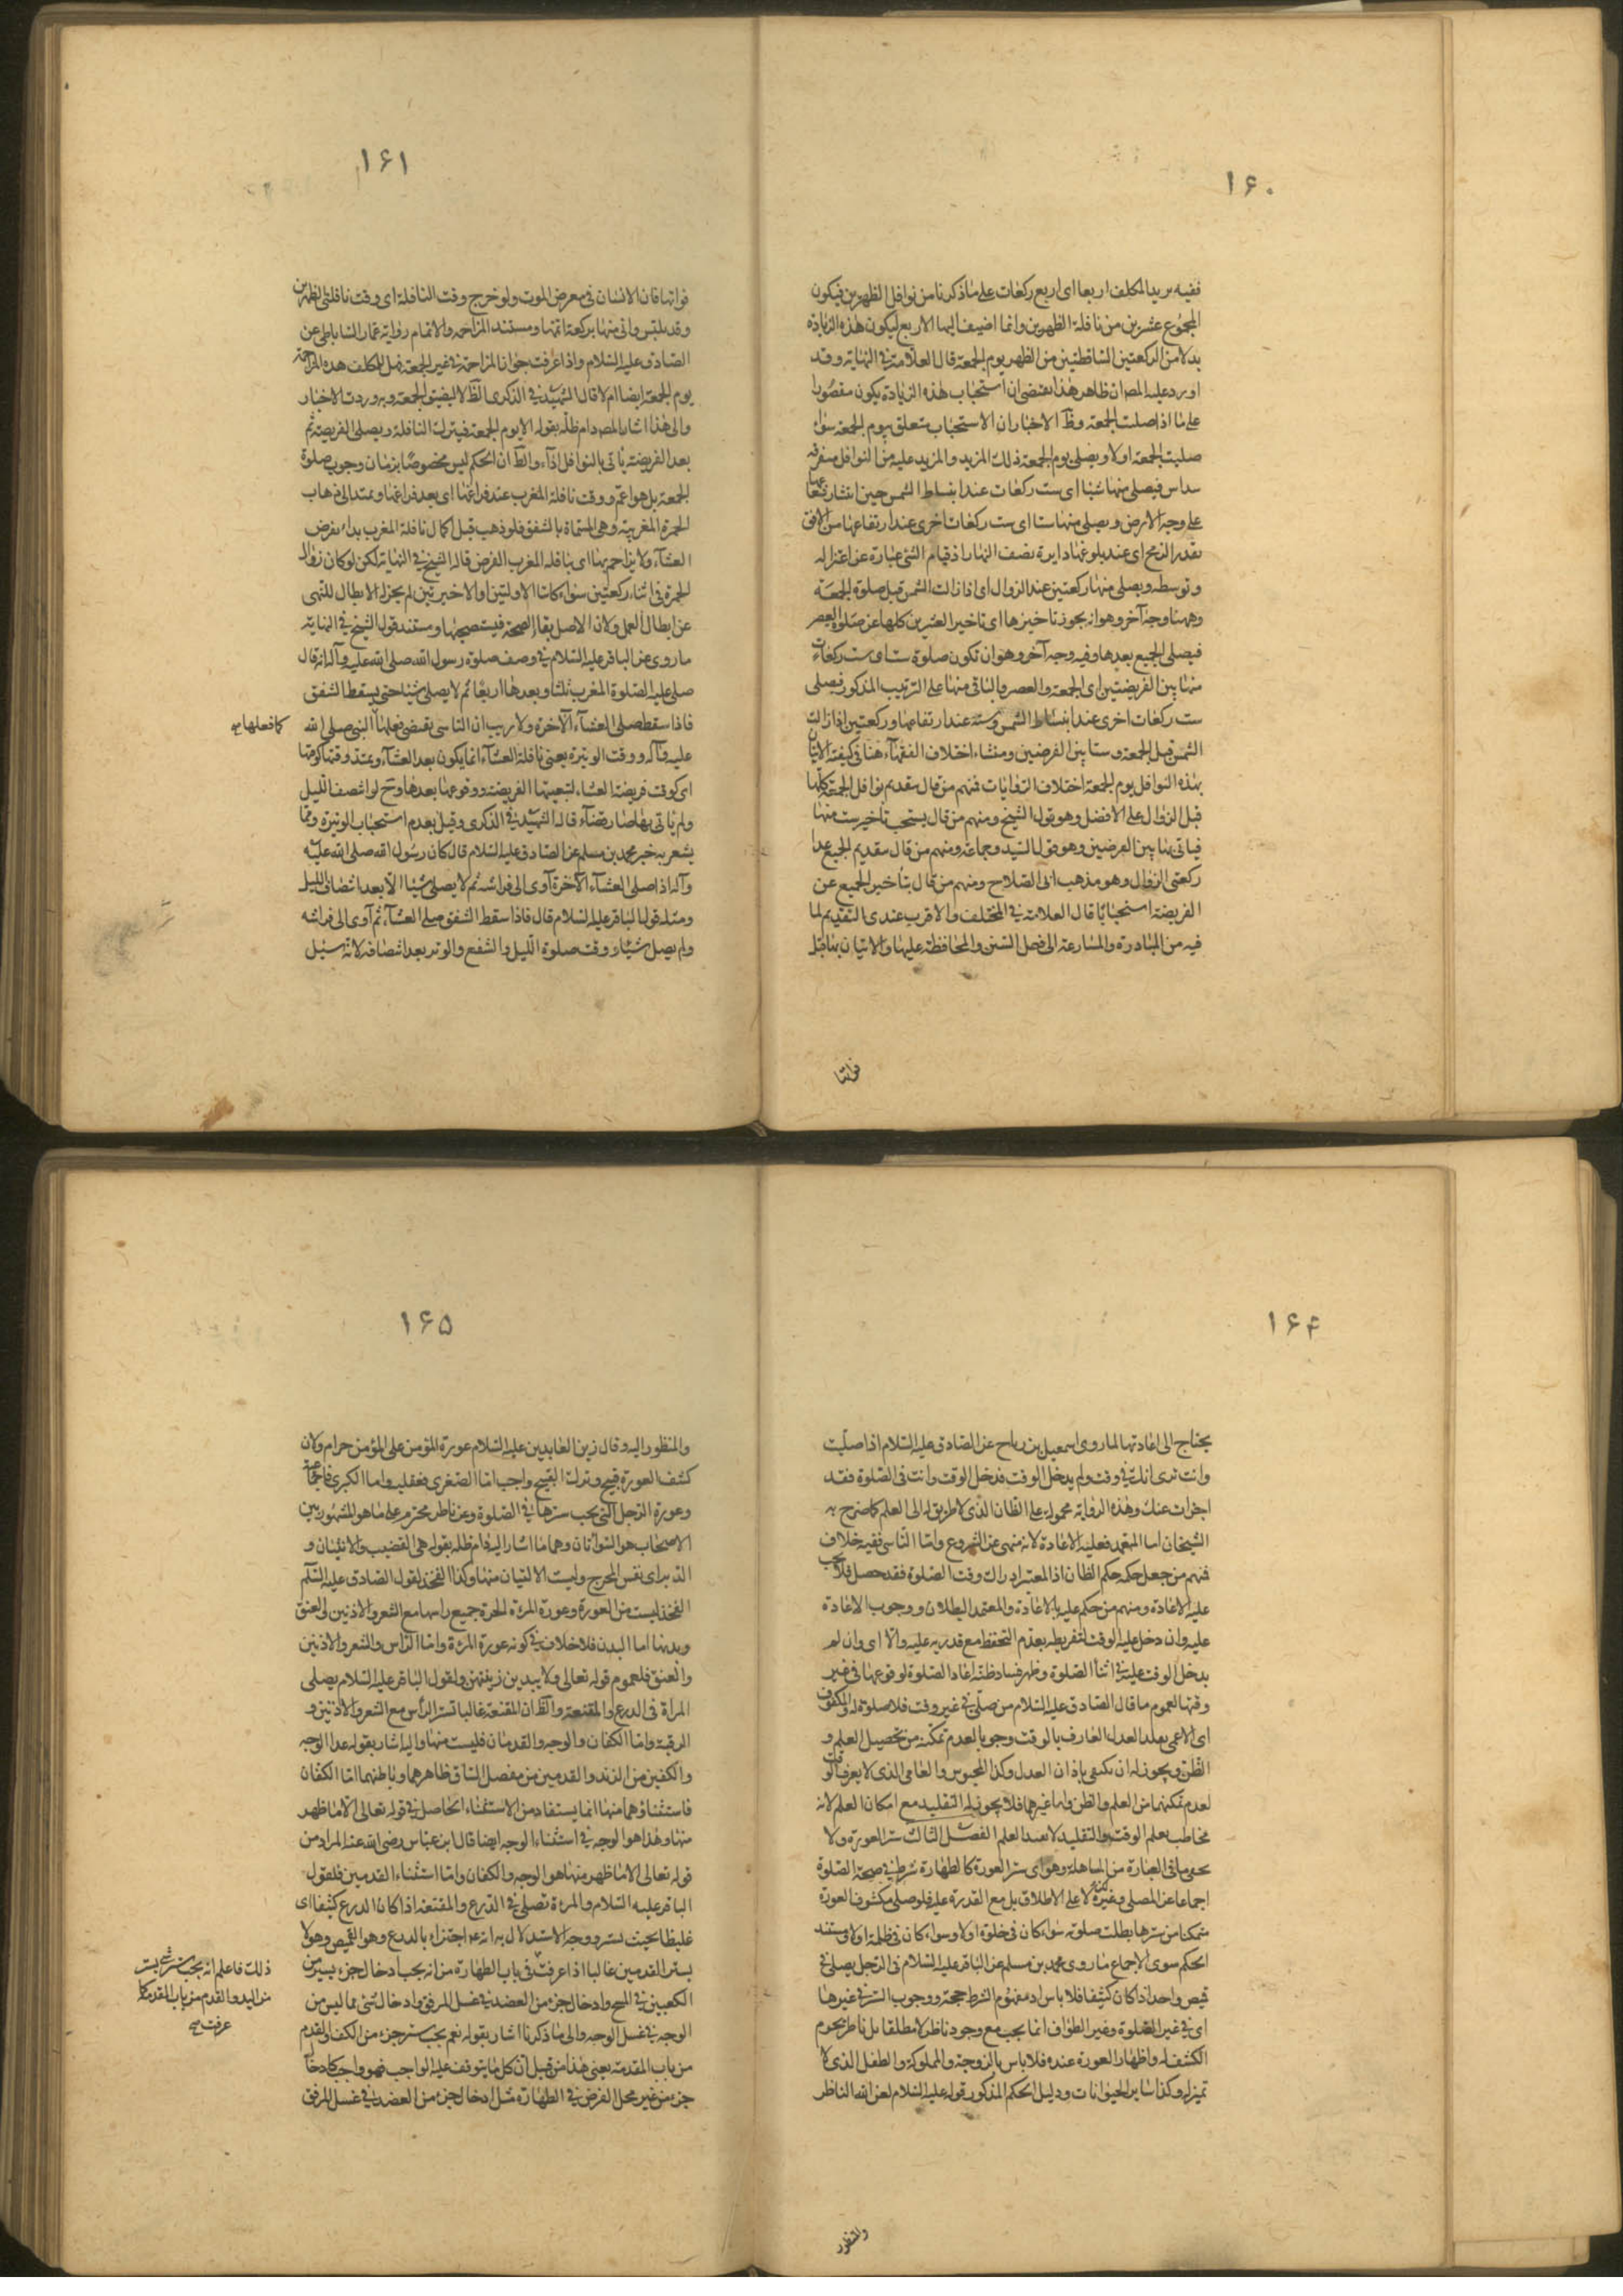 ١۶٠
ففيه يريد المكلف اربعا اى اربع ركعات على ما ذكرنا من نوافل الظهرين فيكون
المجموع عشرين من نافلة الظهرين وانما اضيف اليها الاربع ليكون هذه الزيادة
بدلا من الركعتين الساقطتين من الظهر يوم الجمعة قال العلامة فى النهاية وقد
اورد عليه المص ان ظاهر هذا يقتضى ان استحباب هذه الزيادة يكون مقصورا
على ما اذا صليت الجمعة وظ الاخبار ان الاستحباب متعلق بيوم الجمعة سواء
صليت الجمعة اولا ويصلى يوم الجمعة ذلك المزيد والمزيد عليه من النوافل متفرقه
سداس فيصلى منها شيئا اى ست ركعات عند انبساط الشمس حين انتشار شعاعها
على وجه الارض ويصلى منها ستا اى ست ركعات اخرى عند ارتفاعها من الافق
بقدر الرمح اى عند بلوغها دايرة نصف النهار اذ قيام الشئ عبارة عن اعتداله
وتوسطه ويصلى منها ركعتين عند الزوال اى اذا زالت الشمس قبل صلوة الجمعة
وههنا وجه آخر وهو انه يجوز تاخيرها اى تاخير العشرين كلها عن صلوة العصر
فيصلى الجميع بعدها وفيه وجه آخر وهو ان تكون صلوة ست اى ست ركعات
منها بين الفريضتين اى الجمعة والعصر والباقى منها على الترتيب المذكور فيصلى
ست ركعات اخرى عند انبساط الشمس وستة عند ارتفاعها وركعتين اذا زالت
الشمس قبل الجمعة وستا بين الفرضين ومنشاء اختلاف الفقهآء هنا فى كيفية الاتيان
بهذه النوافل يوم الجمعة اختلاف الروايات فمنهم من قال بتقديم نوافل الجمعة كلها
قبل الزوال على الافضل وهو قول الشيخ ومنهم من قال يستحب تاخير ست منها
فياتى بها بين الفرضين وهو قول السيد وجماعة ومنهم من قال بتقديم الجميع عدا
ركعتى الزوال وهو مذهب ابى الصلاح ومنهم من قال بتاخير الجميع عن
الفريضة استحبابا قال العلامة فى المختلف والاقرب عندى التقديم لما
فيه من المبادرة والمسارعة الى فعل السنن والمحافظة عليها والاتيان بها قبل
فواتها
١۶١
فواتها فان الانسان فى معرض الموت ولو خرج وقت النافلة اى وقت نافلتى الظهرين
وقد تلبس واتى منها بركعة اتمها ومستند المزاحمة والاتمام رواية عمار الساباطى عن
الصادق عليه السلام واذا عرفت جواز المزاحمة فى غير الجمعة فهل للمكلف هذه المزاحمة
يوم الجمعة ايضا ام لا قال الشهيد فى الذكرى الظ لا لضيق الجمعة وبه وردت الاخبار
والى هذا اشار المص دام ظله بقوله الا يوم الجمعة فيترك النافلة ويصلى الفريضة ثم
بعد الفريضة ياتى بالنوافل اذآء والظ ان الحكم ليس مخصوصا بزمان وجوب صلوة
الجمعة بل هو اعم ووقت نافلة المغرب عند فراغها اى بعد فراغها ويمتد الى ذهاب
الحمرة المغربية وهى المسماة بالشفق فلو ذهب قبل اكمال نافلة المغرب بداء بفرض
العشآء ولا يزاحم بها اى بنافلة المغرب الفرض قاله الشيخ فى النهاية لكن لو كان زوال
الحمرة فى اثناء ركعتين سواء كانت الاوليتين او الاخيرتين لم يجز له الابطال للنهى
عن ابطال العمل ولان الاصل بقاء الصحة فيستصحبها ومستند قول الشيخ فى النهاية
ما روى عن الباقر عليه السلام فى وصف صلوة رسول الله صلى الله عليه وآله انه قال
صلى عليه الصلوة المغرب ثلثا وبعدها اربعا ثم لا يصلى شيئا حتى يسقط الشفق
فاذا سقط صلى العشآء الآخرة ولا ريب ان التاسى يقتضى فعلها النبى صلى الله
كما فعلها صح
عليه وآله ووقت الوتيرة يعنى نافلة العشآء انما يكون بعد العشآء ويمتد وقتها كوقتها
اى كوقت فريضة العشاء لتبعيتها الفريضة ووقوعها بعدها وح لو انتصف الليل
ولم ياتى بها صارت قضآء قاله الشهيد فى الذكرى وقيل بعدم استحباب الوتيرة ومما
يشعر به خبر محمد بن مسلم عن الصادق عليه السلام قال كان رسول الله صلى الله عليه
وآله اذا صلى العشآء الآخرة آوى الى فراشه ثم لا يصلى شيئا الا بعد انتصاف الليل
ومثله قول الباقر عليه السلام قال فاذا سقط الشفق صلى العشآء ثم آوى الى فراشه
ولم يصل شيئا ووقت صلوة الليل والشفع والوتر بعد انتصافه لانه سئل
١۶۴
يحتاج الى اعادتها لما روى اسمعيل بن رباح عن الصادق عليه السلام اذا صليت
وانت ترى انك فى وقت ولم يدخل الوقت فدخل الوقت وانت فى الصلوة فقد
اجزات عنك وهذه الرواية محمولة على الظان الذى لا طريق له الى العلم كما صرح به
الشيخان اما المتعمد فعليه الاعادة لانه منهى عن الشروع واما الناسى ففيه خلاف
فمنهم من جعل حكمه حكم الظان اذ المعتبر ادراك وقت الصلوة فقد حصل فلا يجب
عليه الاعادة ومنهم من حكم عليه بالاعادة والمعتمد البطلان ووجوب الاعادة
عليه وان دخل عليه الوقت لتفريطه بعدم التحفظ مع قدرته عليه والا اى وان لم
يدخل الوقت عليه فى اثنآ الصلوة وظهر فساد ظنه اعاد الصلوة لوقوعها فى غير
وقتها لعموم ما قال الصادق عليه السلام من صلى فى غير وقت فلا صلوة له والمكفوف
اى الاعمى يقلد العدل العارف بالوقت وجوبا لعدم تمكنه من تحصيل العلم و
الظن ويجوز له ان يكتفى باذان العدل وكذا المحبوس والعامى الذى لا يعرف الوقت
لعدم تمكنهما من العلم والظن واما غيرهما فلا يجوز له التقليد مع امكان العلم لانه
مخاطب بعلم الوقت والتقليد لا يفيد العلم الفصل الثالث ستر العورة ولا
يخفى ما فى العبارة من المساهلة وهو اى ستر العورة كالطهارة شرط فى صحة الصلوة
اجماعا عن المصلى وغيره لا على الاطلاق بل مع القدرة عليه فلو صلى مكشوف العورة
متمكنا من سترها بطلت صلوته سواء كان فى خلوة او لا وسواء كان فى ظلمة او لا ومستند
الحكم سوى الاجماع ما روى محمد بن مسلم عن الباقر عليه السلام فى الرجل يصلى فى
قميص واحد اذا كان كثيفا فلا باس اذ مفهوم الشرط حجة ووجوب الستر فى غيرها
اى فى غير الصلوة وغير الطواف انما يجب مع وجود ناظر لا مطلقا بل ناظر يحرم
الكشف له واظهار العورة عنده فلا باس بالزوجة والمملوكة والطفل الذى لا
تميز له وكذا ساير الحيوانات ودليل الحكم المذكور قوله عليه السلام لعن الله الناظر
والمنظور
١۶۵
والمنظور اليه وقال زين العابدين عليه السلام عورة المؤمن على المؤمن حرام ولان
كشف العورة قبيح وترك القبيح واجب اما الصغرى فعقلية واما الكبرى فاجماعية
وعورة الرجل التى يجب سترها فى الصلوة وعن ناظر محترم على ما هو المشهور بين
الاصحاب هو السوأتان وهما ما اشار اليه دام ظله بقوله هى القضيب والانثيان و
الدبر اى نفس المخرج وليست الاليتان منها وكذا الفخذ لقول الصادق عليه السلام
الفخذ ليست من العورة وعورة المرءة الحرة جميع راسها مع الشعر والاذنين الى العنق
وبدنها اما البدن فلا خلاف فى كونه عورة المرءة واما الراس والشعر والاذنين
والعنق فلعموم قوله تعالى ولا يبدين زينتهن ولقول الباقر عليه السلام يصلى
المراة فى الدرع والمقنعة والظ ان المقنعة غالبا تستر الراس مع الشعر والاذنين و
الرقبة واما الكفان والوجه والقدمان فليست منها واليه اشار بقوله عدا الوجه
والكفين من الزند والقدمين من مفصل الساق ظاهرهما وباطنهما اما الكفان
فاستثناؤهما منها انما يستفاد من الاستثناء الحاصل فى قوله تعالى الا ما ظهر
منها وهذا هو الوجه فى استثناء الوجه ايضا قال ابن عباس رضى الله عنه المراد من
قوله تعالى الا ما ظهر منها هو الوجه والكفان واما استثناء القدمين فلقول
الباقر عليه السلام والمرءة تصلى فى الدرع والمقنعة اذا كان الدرع كثيفا اى
غليظا بحيث يستر ووجه الاستدلال به انه ع اجتزاء بالدرع وهو القميص وهو لا
يستر القدمين غالبا اذا عرفت فى باب الطهارة من انه يجب ادخال جزء يسير من
ذلك فاعلم انه يجب ستر شئ يسير
من اليد والقدم من باب المقدمة كما
عرفت صح
الكعبين فى المسح وادخال جزء من العضد فى غسل المرفق وادخال شئ مما ليس من
الوجه فى غسل الوجه والى ما ذكرنا اشار بقوله نعم يجب ستر جزء من الكف والقدم
من باب المقدمة يعنى هذا من قبيل ان كل ما يتوقف عليه الواجب فهو واجب كادخال
جزء من غير محل الفرض فى الطهارة مثل ادخال جزء من العضد فى غسل المرفق